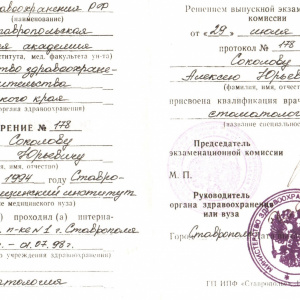 равоохранения РФ
(наименование)
авропольская
ая академия
нститута, мед. факультета ун-та)
ство здравоохране-
ительства
ского края
органа здравоохранения)
РЕНИЕ № 178
Соколову
Юрьевичу
имя, отчество)
1994 году Ставро-
ицинский институт
е медицинского вуза)
) проходил (а) интерна-
п-ке №1 г. Ставрополя
г. – 01.07.98г.
а учреждения здравоохранения)
атология
Решением выпускной экзам
комиссии
от «29» июля
протокол № 178
Соколову
Алексею Юрьеви
(фамилия, имя, отчество)
присвоена квалификация врача
стоматолог
(название специальнос
Председатель
экзаменационной комиссии
М. П.
Руководитель
органа здравоохранения
или вуза
Горо Ставрополь
ГП ИПФ «Ставрополь